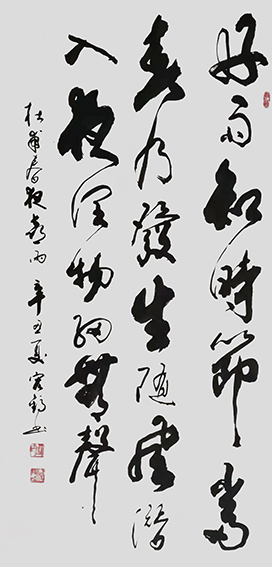 好雨知時節當
春乃發生随風潛
入夜潤物細無聲
杜甫春夜喜雨 辛丑夏 书